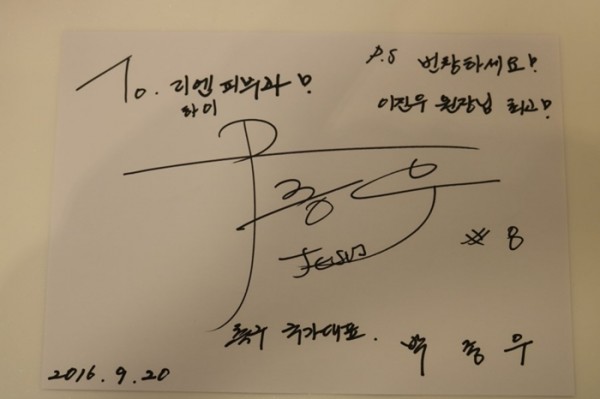 To. 리엔 피부과!
라이
P.S 번창하세요!
이진우 원장님 최고!
종우
JESUS
# 8
축구 국가대표.
박 종 우
2016. 9. 20